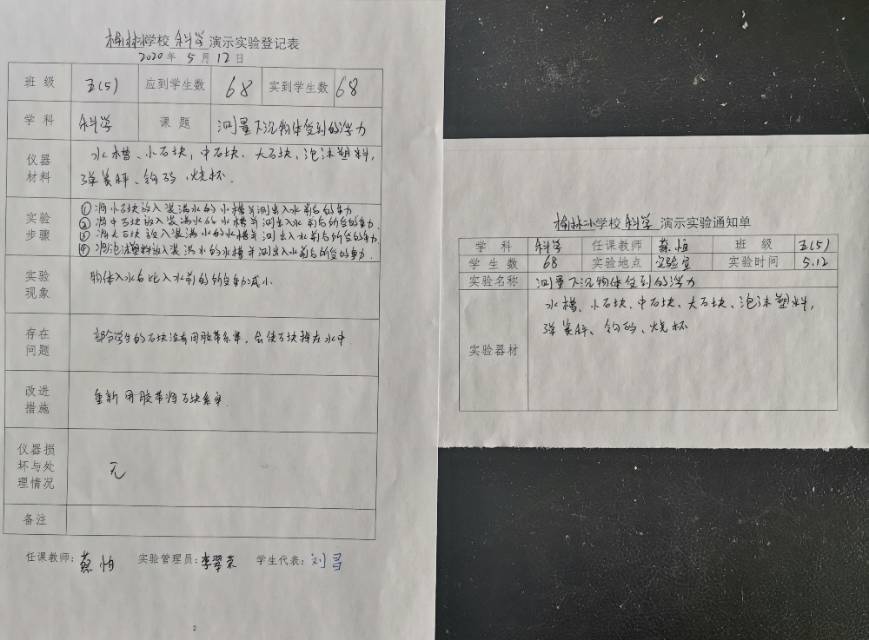 柳林小学校科学演示实验登记表
2020年5月12日
班 级 五(5) 应到学生数 68 实到学生数 68
学 科 科学 课 题 测量下沉物体受到的浮力
仪器材料 水槽、小石块,中石块、大石块,泡沫塑料,
弹簧秤、钩码、烧杯.
实验步骤 ①将小石块放入装满水的水槽并测出入水前后的重力
②将中石块放入装满水的水槽并测出入水前后所受的重力
③将大石块放入装满水的水槽并测出入水前后所受的重力
④将泡沫塑料放入装满水的水槽并测出入水前后所受的重力
实验现象 物体入水后比入水前的所受重力减小
存在问题 部分学生的石块没有用胶带系牢,会使石块掉在水中
改进措施 重新用胶带将石块系牢.
仪器损坏与处理情况 无
备注
任课教师:蔡怡 实验管理员:李翠 学生代表:刘
2
柳林小学校科学演示实验通知单
学 科 科学 任课教师 蔡怡 班 级 五(5)
学 生 数 68 实验地点 实验室 实验时间 5.12
实验名称 测量下沉物体受到的浮力
实验器材 水槽、小石块、中石块、大石块、泡沫塑料,
弹簧秤、钩码、烧杯